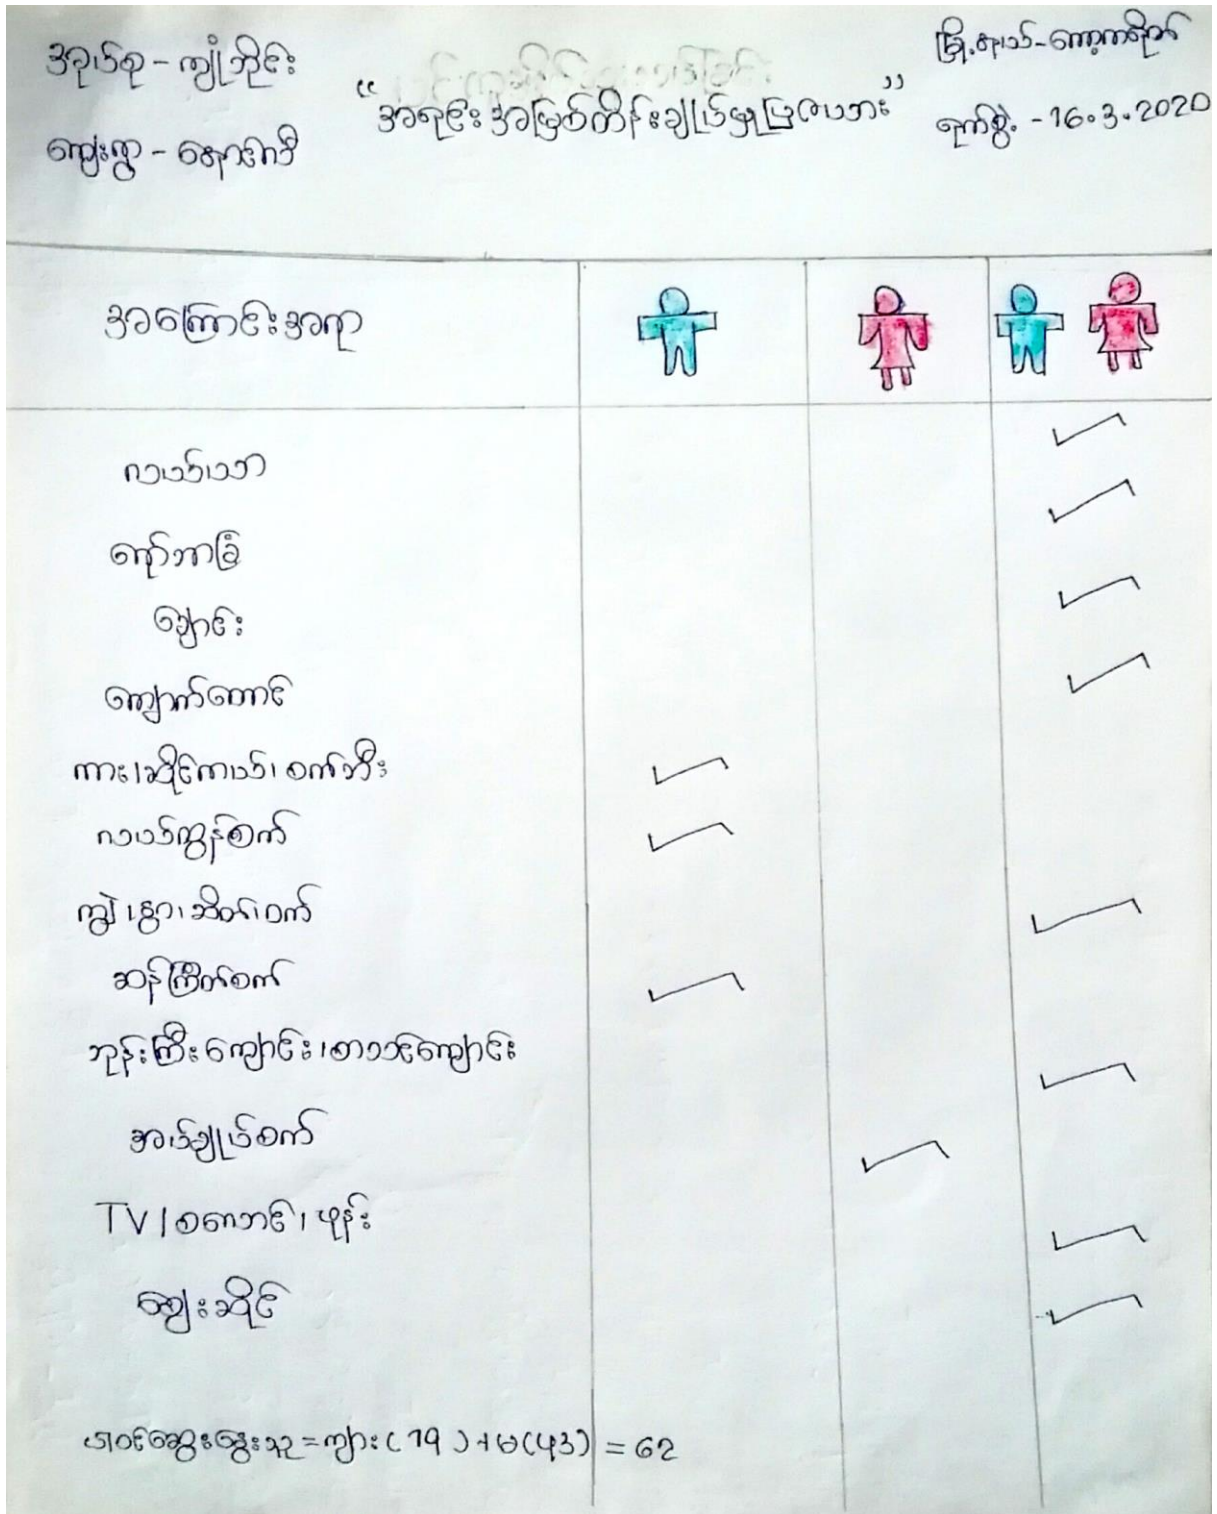 အုပ်စု - ကျုံဘိုင်း
မြို့နယ် - ကော့ကရိတ်
"အရင်းအမြစ်ထိန်းချုပ်မှုပြဇယား"
ရက်စွဲ. - 16.3.2020
ကျေးရွာ -
အကြောင်းအရာ
လယ်ယာ
ရော်ဘာခြံ
ချောင်း
ကျောက်တောင်
ကား၊ ဆိုင်ကယ်၊ စက်ဘီး
လယ်ထွန်စက်
ကျွဲ၊ နွား၊ ဆိတ်၊ ဝက်
ဆန်ကြိတ်စက်
ဘုန်းကြီးကျောင်း၊ စာသင်ကျောင်း
အပ်ချုပ်စက်
TV၊ စလောင်း၊ ဖုန်း
ဈေးဆိုင်
ပါဝင်ဆွေးနွေးသူ = ကျား (19) + မ (43) = 62